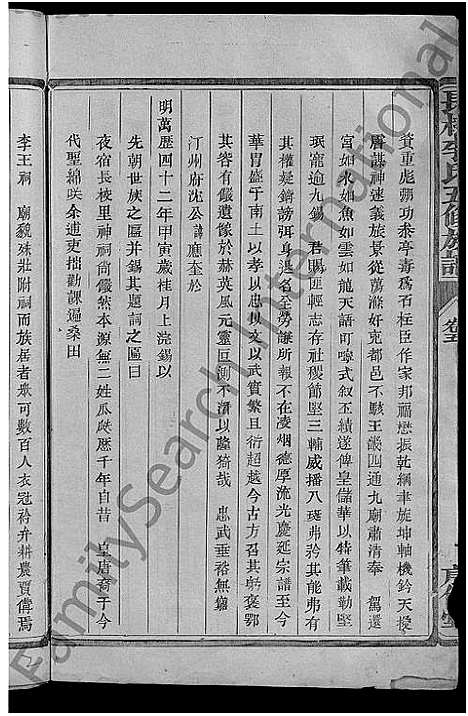 長校李氏五修族譜
卷
資重彪炳功參亭毒為石柱臣作家邦福懋振乾綱聿旋坤軸機鈐天授
膚謀神速義旅景從萬滌奸克都邑不駭王畿四通九廟肅清奉 駕還
宮如水如魚如雲如龍天語叮嚀式叙丕績遂俾皇儲華以特筆載勒堅
珉寵逾九錫 君賜匪輕志存社稷節堅三輔威播八埏弗矜其能弗有
其權疑鑄謗弭身退名全勞謙所報不在凌烟德厚流光慶延宗譜至今
華胄盛于南土以孝以忠以文以武實繁且衍超越今古方召其
其容有儼遺像於赫英風元靈叵測不潛以隆猗哉 忠武垂裕無窮
汀州府沈公諱應奎於
明萬歷四十二年甲寅歲桂月上浣錫以
先朝世族之匾并錫其題詞之區曰
夜宿長校里神祠尚儼然本源無二姓瓜瓞歷千年自昔 皇唐裔于今
代聖綿咲余逋吏拙勸課遍桑田
李王祠 廟貌殊壯附祠而族居者眾可數百人衣冠衿弁耕農賈傳焉
FamilySearch International